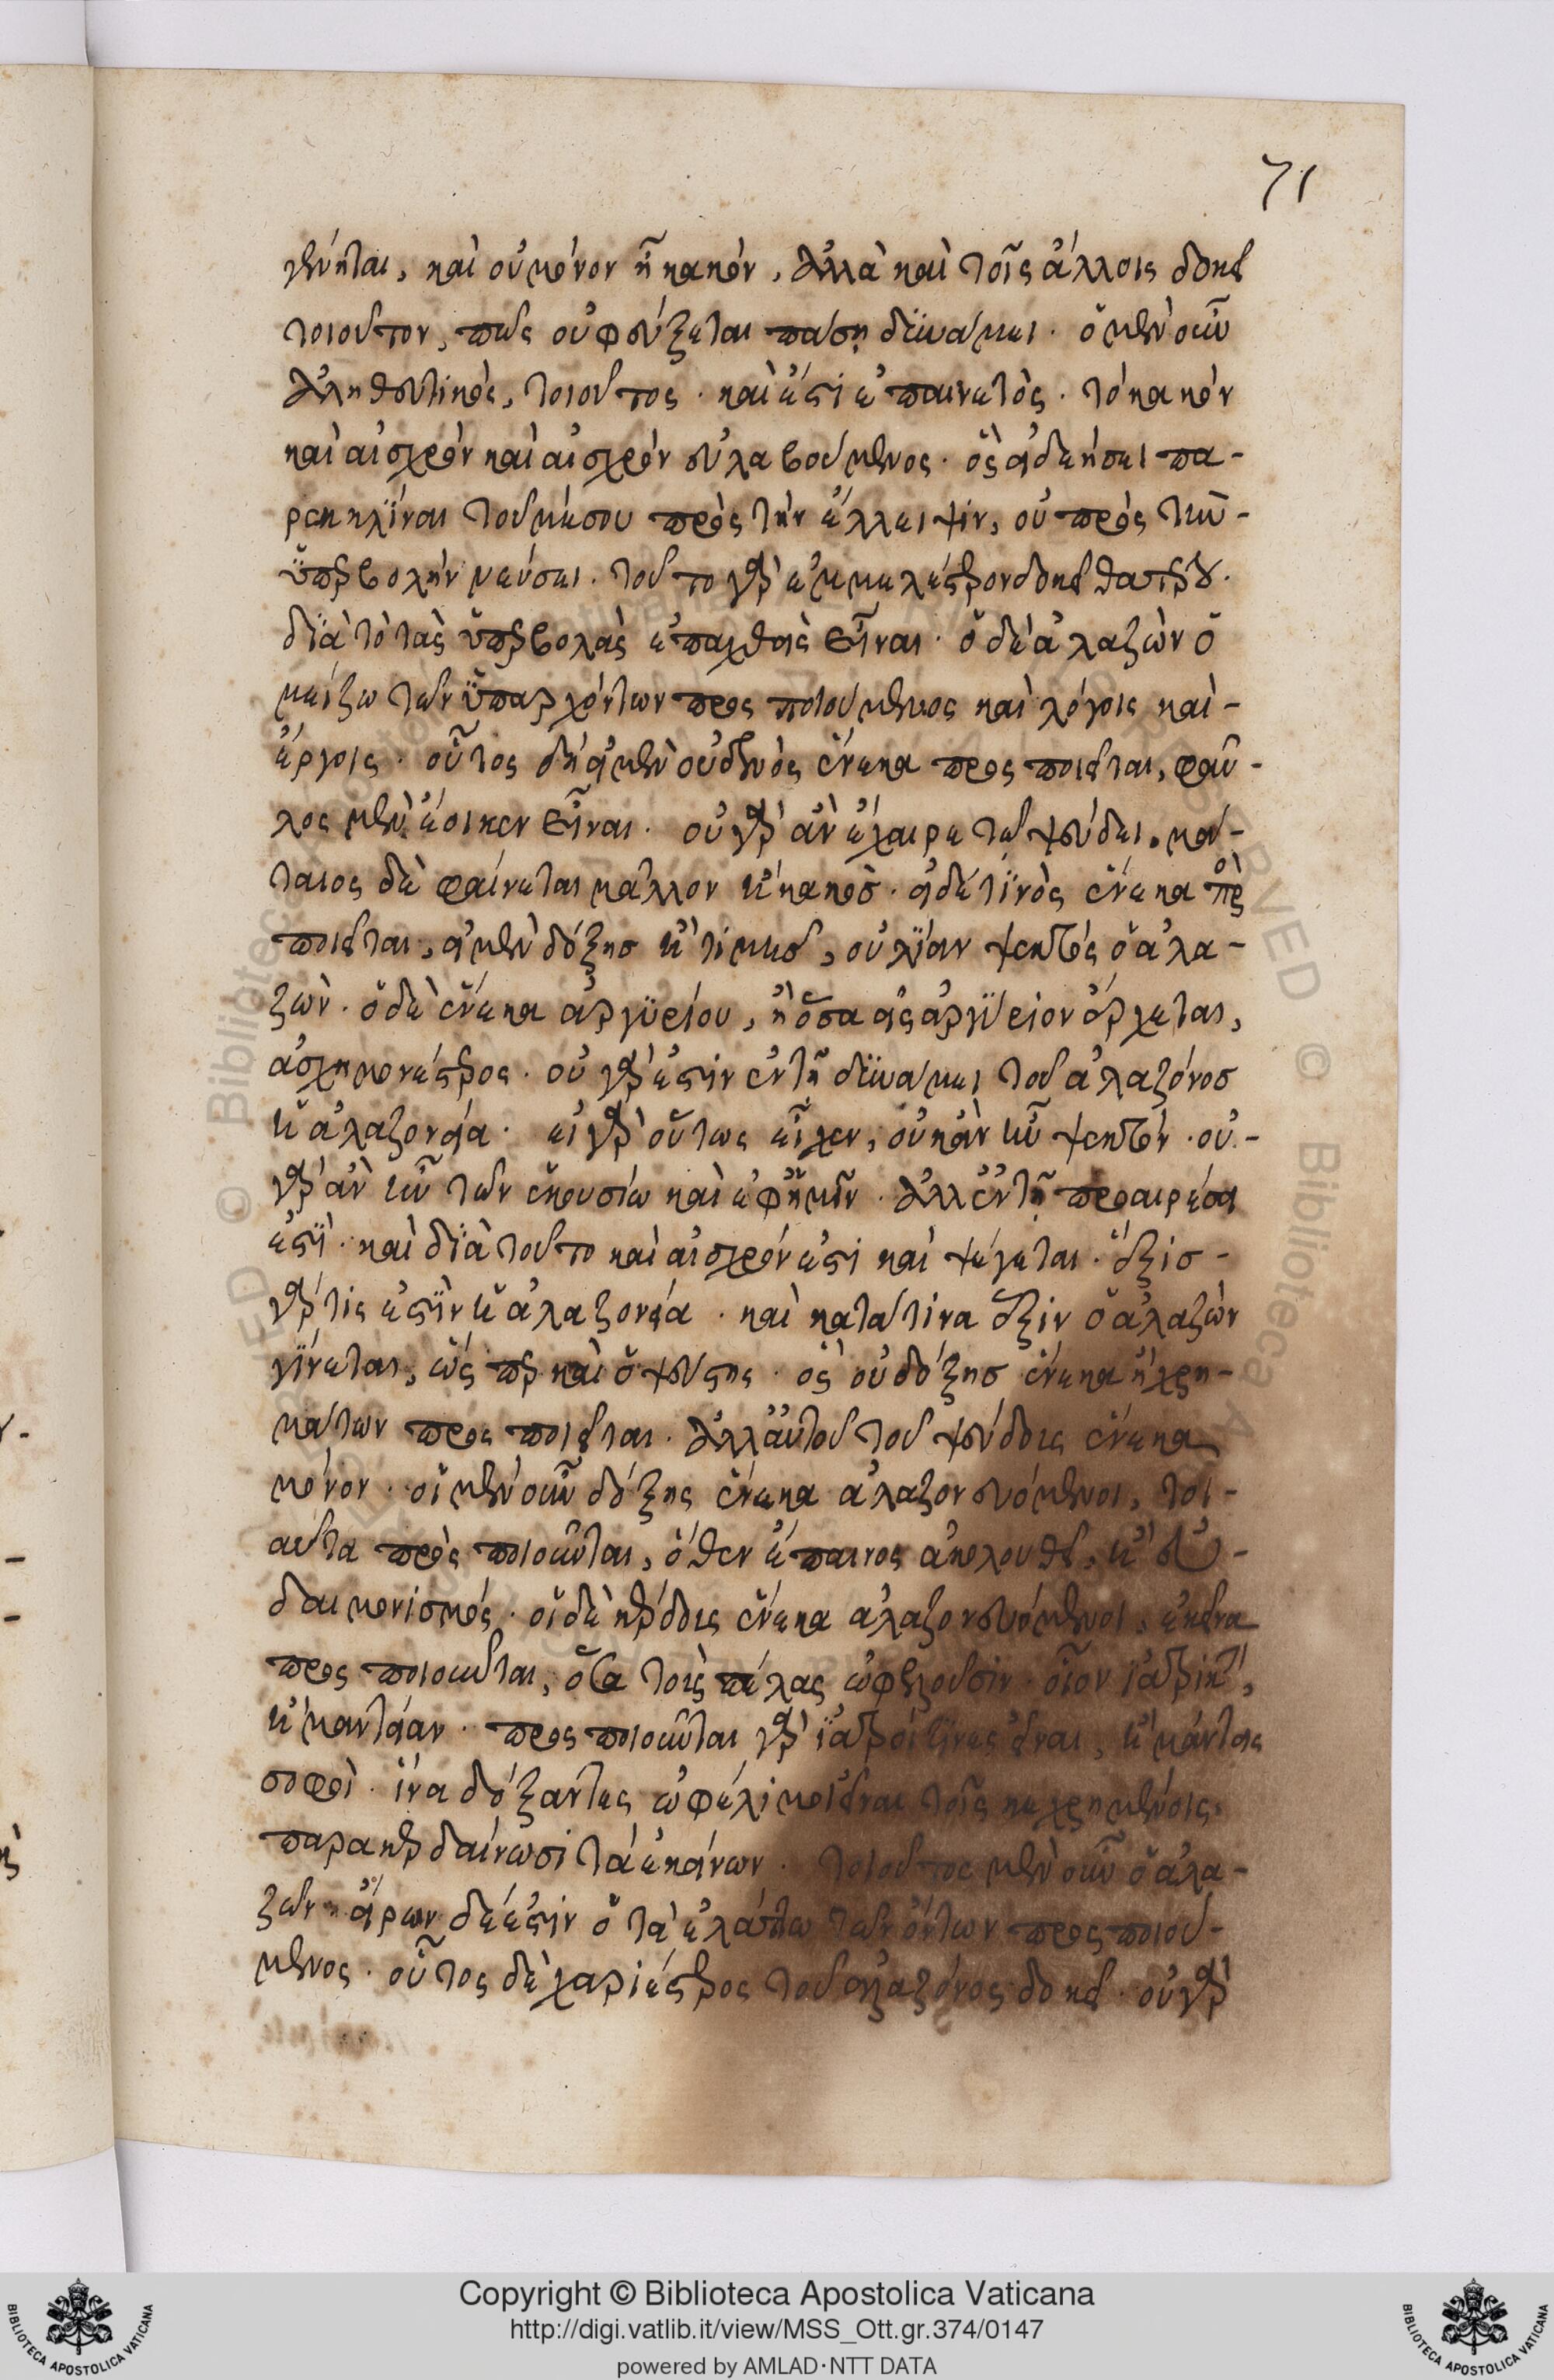 71
γένηται, καὶ οὐ μόνον ᾖ κακόν, ἀλλὰ καὶ τοῖς ἄλλοις δοκεῖ
τοιοῦτον, πῶς οὐ φεύξεται πάσῃ δυνάμει· ὁ μὲν οὖν
ἀληθευτικὸς, τοιοῦτος· καὶ ἔστι ἐπαινετὸς· τὸ κακὸν
καὶ αἰσχρὸν καὶ αἰσχρὸν εὐλαβούμενος· ὃς εἰ δεήσει πα-
ρεκκλῖναι τοῦ μέσου πρὸς τὴν ἔλλειψιν, οὐ πρὸς τὴν-
ὑπερβολὴν νεύσει. τοῦτο γὰρ ἐμμελέστερον δοκεῖ θατέρου.
διὰ τὸ τὰς ὑπερβολὰς ἐπαχθεῖς εἶναι· ὁ δὲ ἀλαζὼν ὁ
μείζω τῶν ὑπαρχόντων προσποιούμενος καὶ λόγοις καὶ-
ἔργοις· οὗτος δὴ εἰ μὲν οὐδενὸς ἕνεκα προσποιεῖται, φαῦ-
λος μὲν ἔοικεν εἶναι. οὐ γὰρ ἂν ἔχαιρε τῷ ψεύδει. μά-
ταιος δὲ φαίνεται μᾶλλον ἢ κακὸς· εἰ δέ τινὸς ἕνεκα προσ
ποιεῖται, εἰ μὲν δόξης ἢ τιμῆς, οὐ λίαν ψεκτός ὁ ἀλα-
ζὼν· ὁ δὲ ἕνεκα ἀργυρίου, ἢ ὅσα εἰς ἀργύριον ἔρχεται,
ἀσχημονέστερος· οὐ γάρ ἐστιν ἐν τῇ δυνάμει τοῦ ἀλαζόνος
ἡ ἀλαζονεία· εἰ γὰρ οὕτως εἶχεν, οὐκ ἂν ἦν ψεκτόν· οὐ-
γὰρ ἂν ἦν τῶν ἑκουσίω καὶ ἐφ' ἡμῖν· ἀλλ' ἐν τῇ προαιρέσει
ἐστὶ· καὶ διὰ τοῦτο καὶ αἰσχρόν ἐστι καὶ ψέγεται. ἕξις-
γάρ τις ἐστὶν ἡ ἀλαζονεία· καὶ κατά τινα ἕξιν ὁ ἀλαζὼν
γίνεται, ὥς περ καὶ ὁ ψεύστης· ὃς οὐ δόξης ἕνεκα ἢ χρη-
μάτων προσποιεῖται· ἀλλ' αὐτοῦ τοῦ ψεύδους ἕνεκα
μόνον· οἱ μὲν οὖν δόξης ἕνεκα ἀλαζονευόμενοι, τοι-
αῦτα προσποιοῦνται, ὅθεν ἔπαινος ἀκολουθεῖ, ἢ εὐ-
δαιμονισμός· οἱ δὲ κέρδους ἕνεκα ἀλαζονευόμενοι, ἐκεῖνα
προσποιοῦνται, ὅσα τοὺς πέλας ὠφελοῦσιν· οἷον ἰατρικὴν,
ἢ μαντείαν· προσποιοῦνται γὰρ ἰατροί τινες εἶναι, ἢ μάντεις
σοφοὶ· ἵνα δόξαντες ὠφέλιμοι εἶναι τοῖς κεχρημένοις,
παρακερδαίνωσι τὰ ἐκείνων· τοιοῦτος μὲν οὖν ὁ ἀλα-
ζὼν· εἴρων δέ ἐστιν ὁ τὰ ἐλάττω τῶν ὄντων προσποιού-
μενος· οὗτος δὲ χαριέστερος τοῦ ἀλαζόνος δοκεῖ· οὐ γὰρ
Copyright © Biblioteca Apostolica Vaticana
http://digi.vatlib.it/view/MSS_Ott.gr.374/0147
powered by AMLAD·NTT DATA
BIBLIOTECA APOSTOLICA VATICANA
BIBLIOTECA APOSTOLICA VATICANA